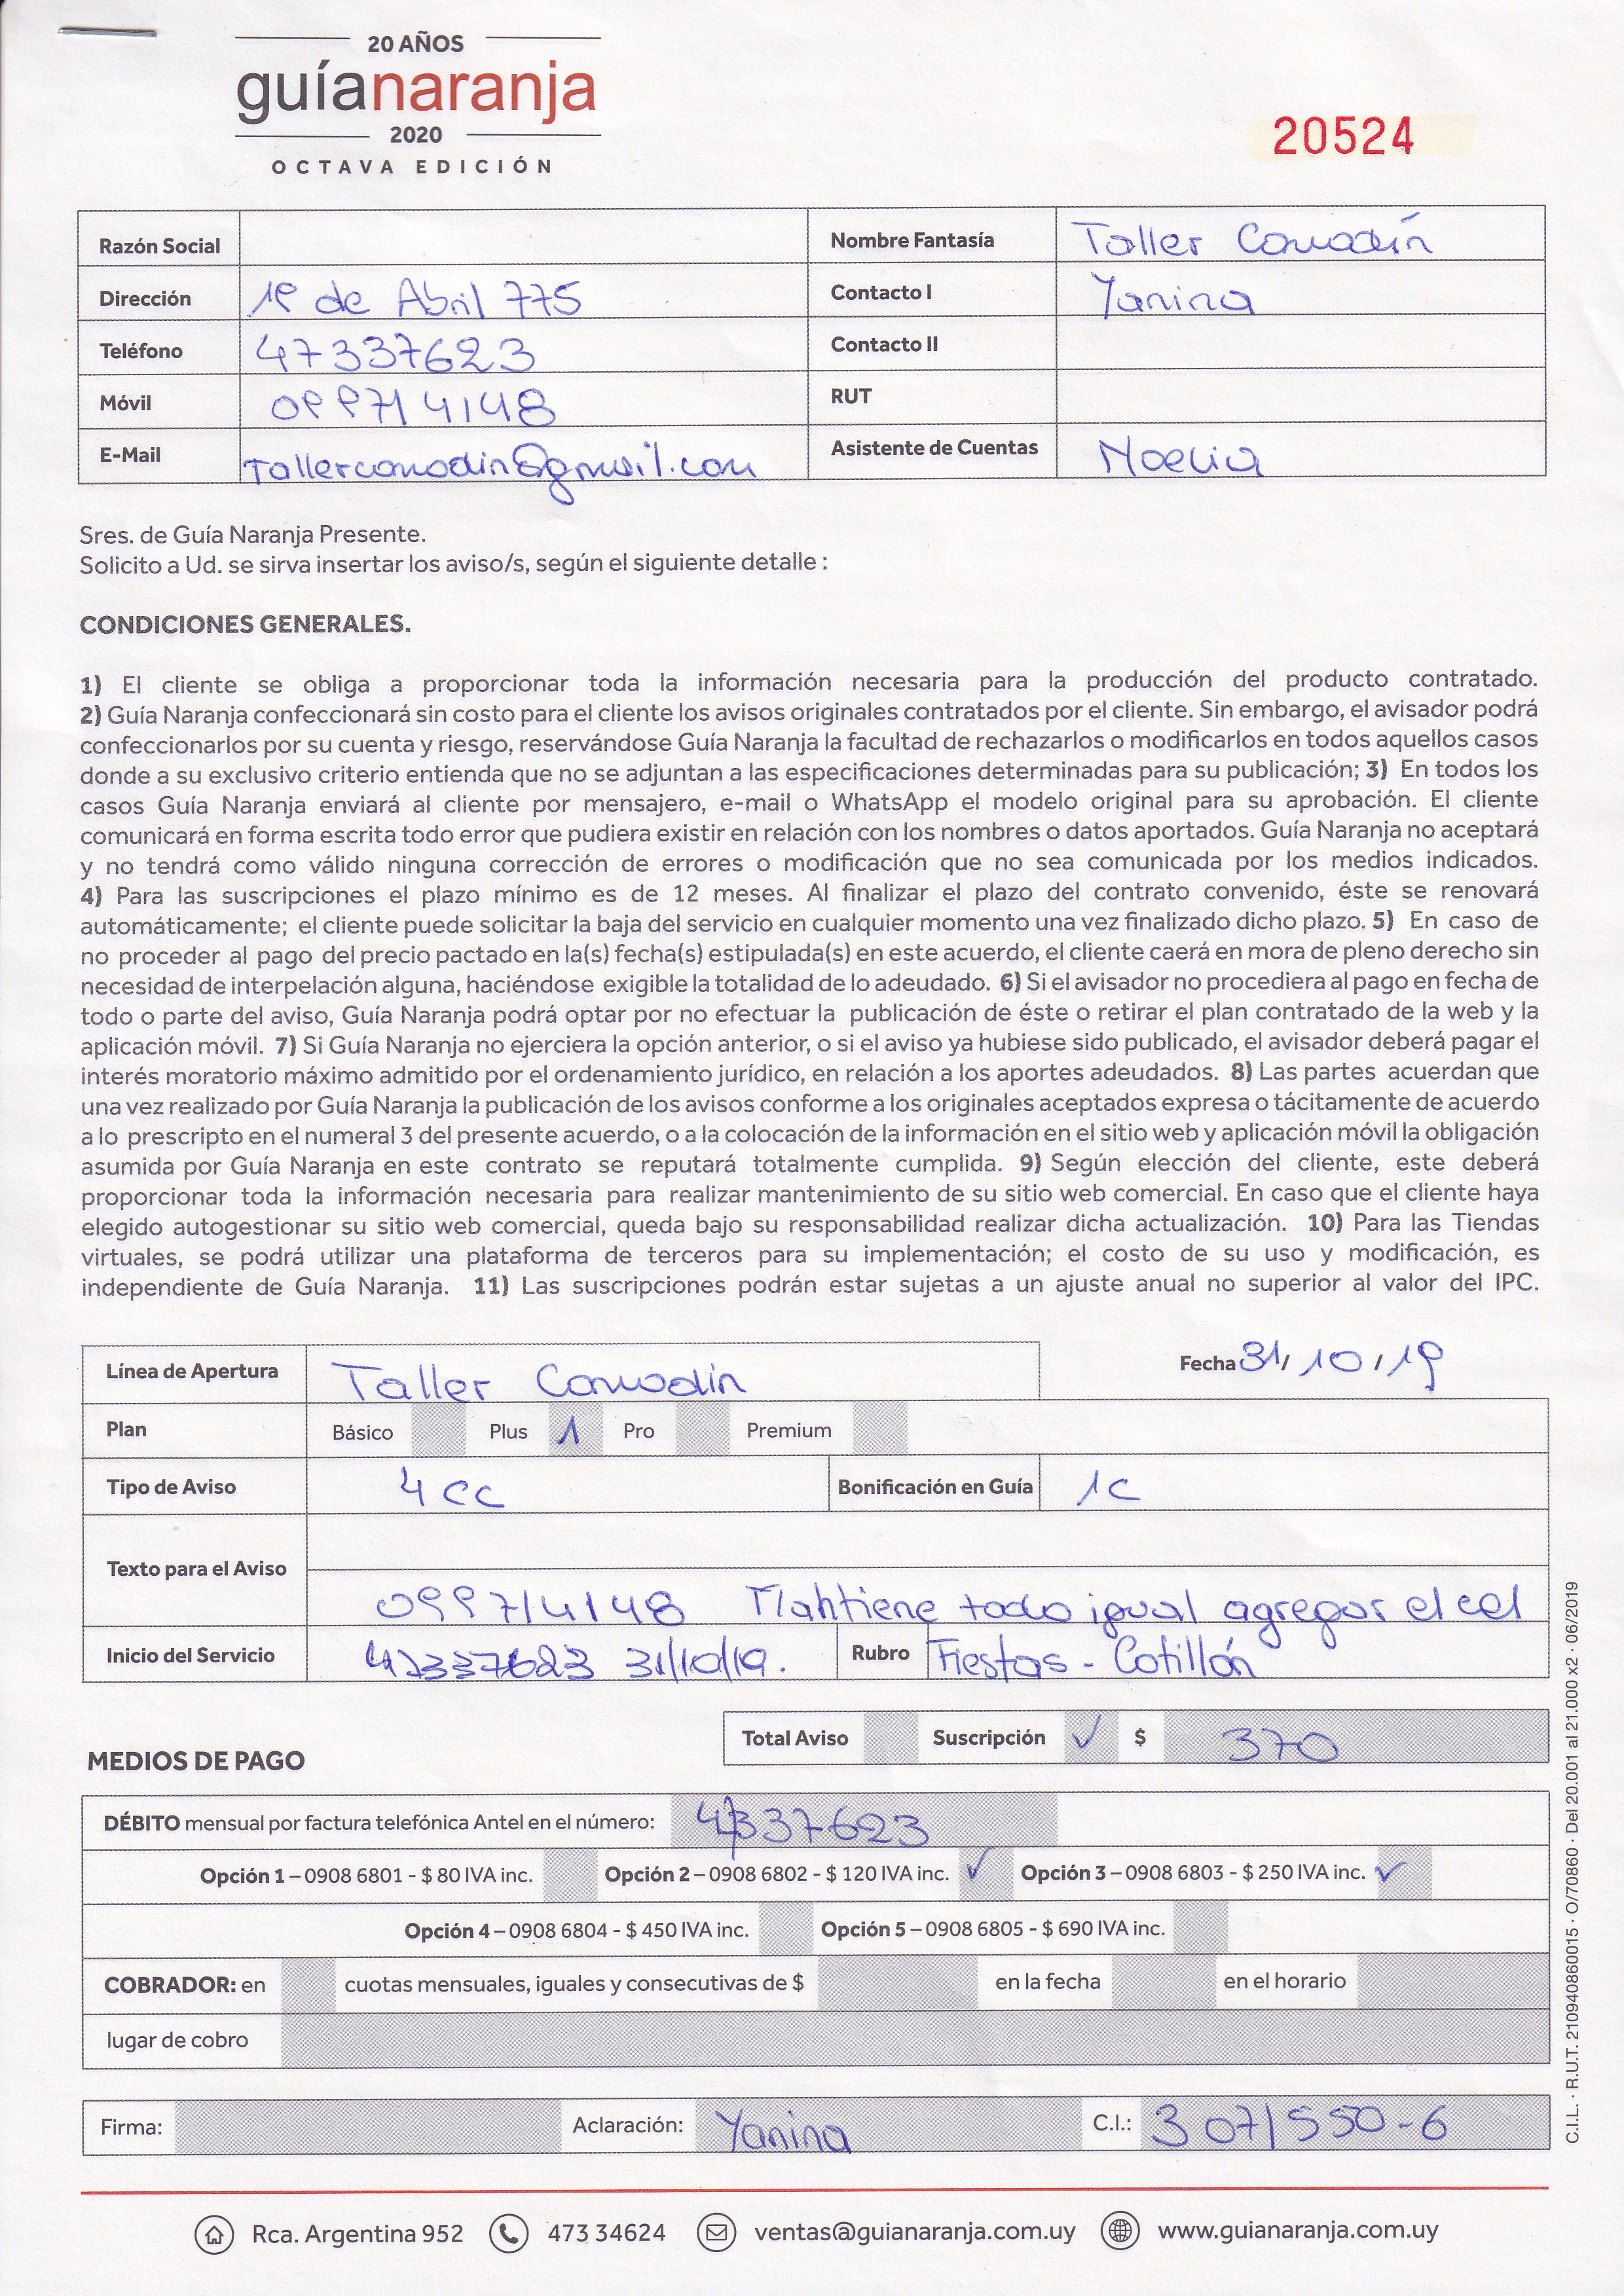 20 AÑOS
guíanaranja
2020
OCTAVA EDICIÓN
20524
Razón Social
Nombre Fantasía Taller Comodín
Dirección 1º de Abril 775
Contacto I Yanina
Teléfono 47337623
Contacto II
Móvil 099714148
RUT
E-Mail Tallercomodin@gmail.com
Asistente de Cuentas Noelia
Sres. de Guía Naranja Presente.
Solicito a Ud. se sirva insertar los aviso/s, según el siguiente detalle :
CONDICIONES GENERALES.
1) El cliente se obliga a proporcionar toda la información necesaria para la producción del producto contratado.
2) Guía Naranja confeccionará sin costo para el cliente los avisos originales contratados por el cliente. Sin embargo, el avisador podrá
confeccionarlos por su cuenta y riesgo, reservándose Guía Naranja la facultad de rechazarlos o modificarlos en todos aquellos casos
donde a su exclusivo criterio entienda que no se adjuntan a las especificaciones determinadas para su publicación; 3) En todos los
casos Guía Naranja enviará al cliente por mensajero, e-mail o WhatsApp el modelo original para su aprobación. El cliente
comunicará en forma escrita todo error que pudiera existir en relación con los nombres o datos aportados. Guía Naranja no aceptará
y no tendrá como válido ninguna corrección de errores o modificación que no sea comunicada por los medios indicados.
4) Para las suscripciones el plazo mínimo es de 12 meses. Al finalizar el plazo del contrato convenido, éste se renovará
automáticamente; el cliente puede solicitar la baja del servicio en cualquier momento una vez finalizado dicho plazo. 5) En caso de
no proceder al pago del precio pactado en la(s) fecha(s) estipulada(s) en este acuerdo, el cliente caerá en mora de pleno derecho sin
necesidad de interpelación alguna, haciéndose exigible la totalidad de lo adeudado. 6) Si el avisador no procediera al pago en fecha de
todo o parte del aviso, Guía Naranja podrá optar por no efectuar la publicación de éste o retirar el plan contratado de la web y la
aplicación móvil. 7) Si Guía Naranja no ejerciera la opción anterior, o si el aviso ya hubiese sido publicado, el avisador deberá pagar el
interés moratorio máximo admitido por el ordenamiento jurídico, en relación a los aportes adeudados. 8) Las partes acuerdan que
una vez realizado por Guía Naranja la publicación de los avisos conforme a los originales aceptados expresa o tácitamente de acuerdo
a lo prescripto en el numeral 3 del presente acuerdo, o a la colocación de la información en el sitio web y aplicación móvil la obligación
asumida por Guía Naranja en este contrato se reputará totalmente cumplida. 9) Según elección del cliente, este deberá
proporcionar toda la información necesaria para realizar mantenimiento de su sitio web comercial. En caso que el cliente haya
elegido autogestionar su sitio web comercial, queda bajo su responsabilidad realizar dicha actualización. 10) Para las Tiendas
virtuales, se podrá utilizar una plataforma de terceros para su implementación; el costo de su uso y modificación, es
independiente de Guía Naranja. 11) Las suscripciones podrán estar sujetas a un ajuste anual no superior al valor del IPC.
Línea de Apertura Taller Comodín
Fecha 31/ 10 / 19
Plan Básico Plus 1 Pro Premium
Tipo de Aviso 4 cc Bonificación en Guía 1c
Texto para el Aviso
099714148 Mantiene todo igual agregar el cel
Inicio del Servicio 47337623 31/10/19. Rubro Fiestas - Cotillón
Total Aviso Suscripción ✓ $ 370
MEDIOS DE PAGO
DÉBITO mensual por factura telefónica Antel en el número: 47337623
Opción 1 – 0908 6801 - $ 80 IVA inc. Opción 2 – 0908 6802 - $ 120 IVA inc. ✓ Opción 3 – 0908 6803 - $ 250 IVA inc. ✓
Opción 4 – 0908 6804 - $ 450 IVA inc. Opción 5 – 0908 6805 - $ 690 IVA inc.
COBRADOR: en cuotas mensuales, iguales y consecutivas de $ en la fecha en el horario
lugar de cobro
Firma: Aclaración: Yanina C.I.: 3 071550-6
C.I.L. · R.U.T. 210940860015 · O/70860 · Del 20.001 al 21.000 x2 · 06/2019
Rca. Argentina 952 473 34624 ventas@guianaranja.com.uy www.guianaranja.com.uy